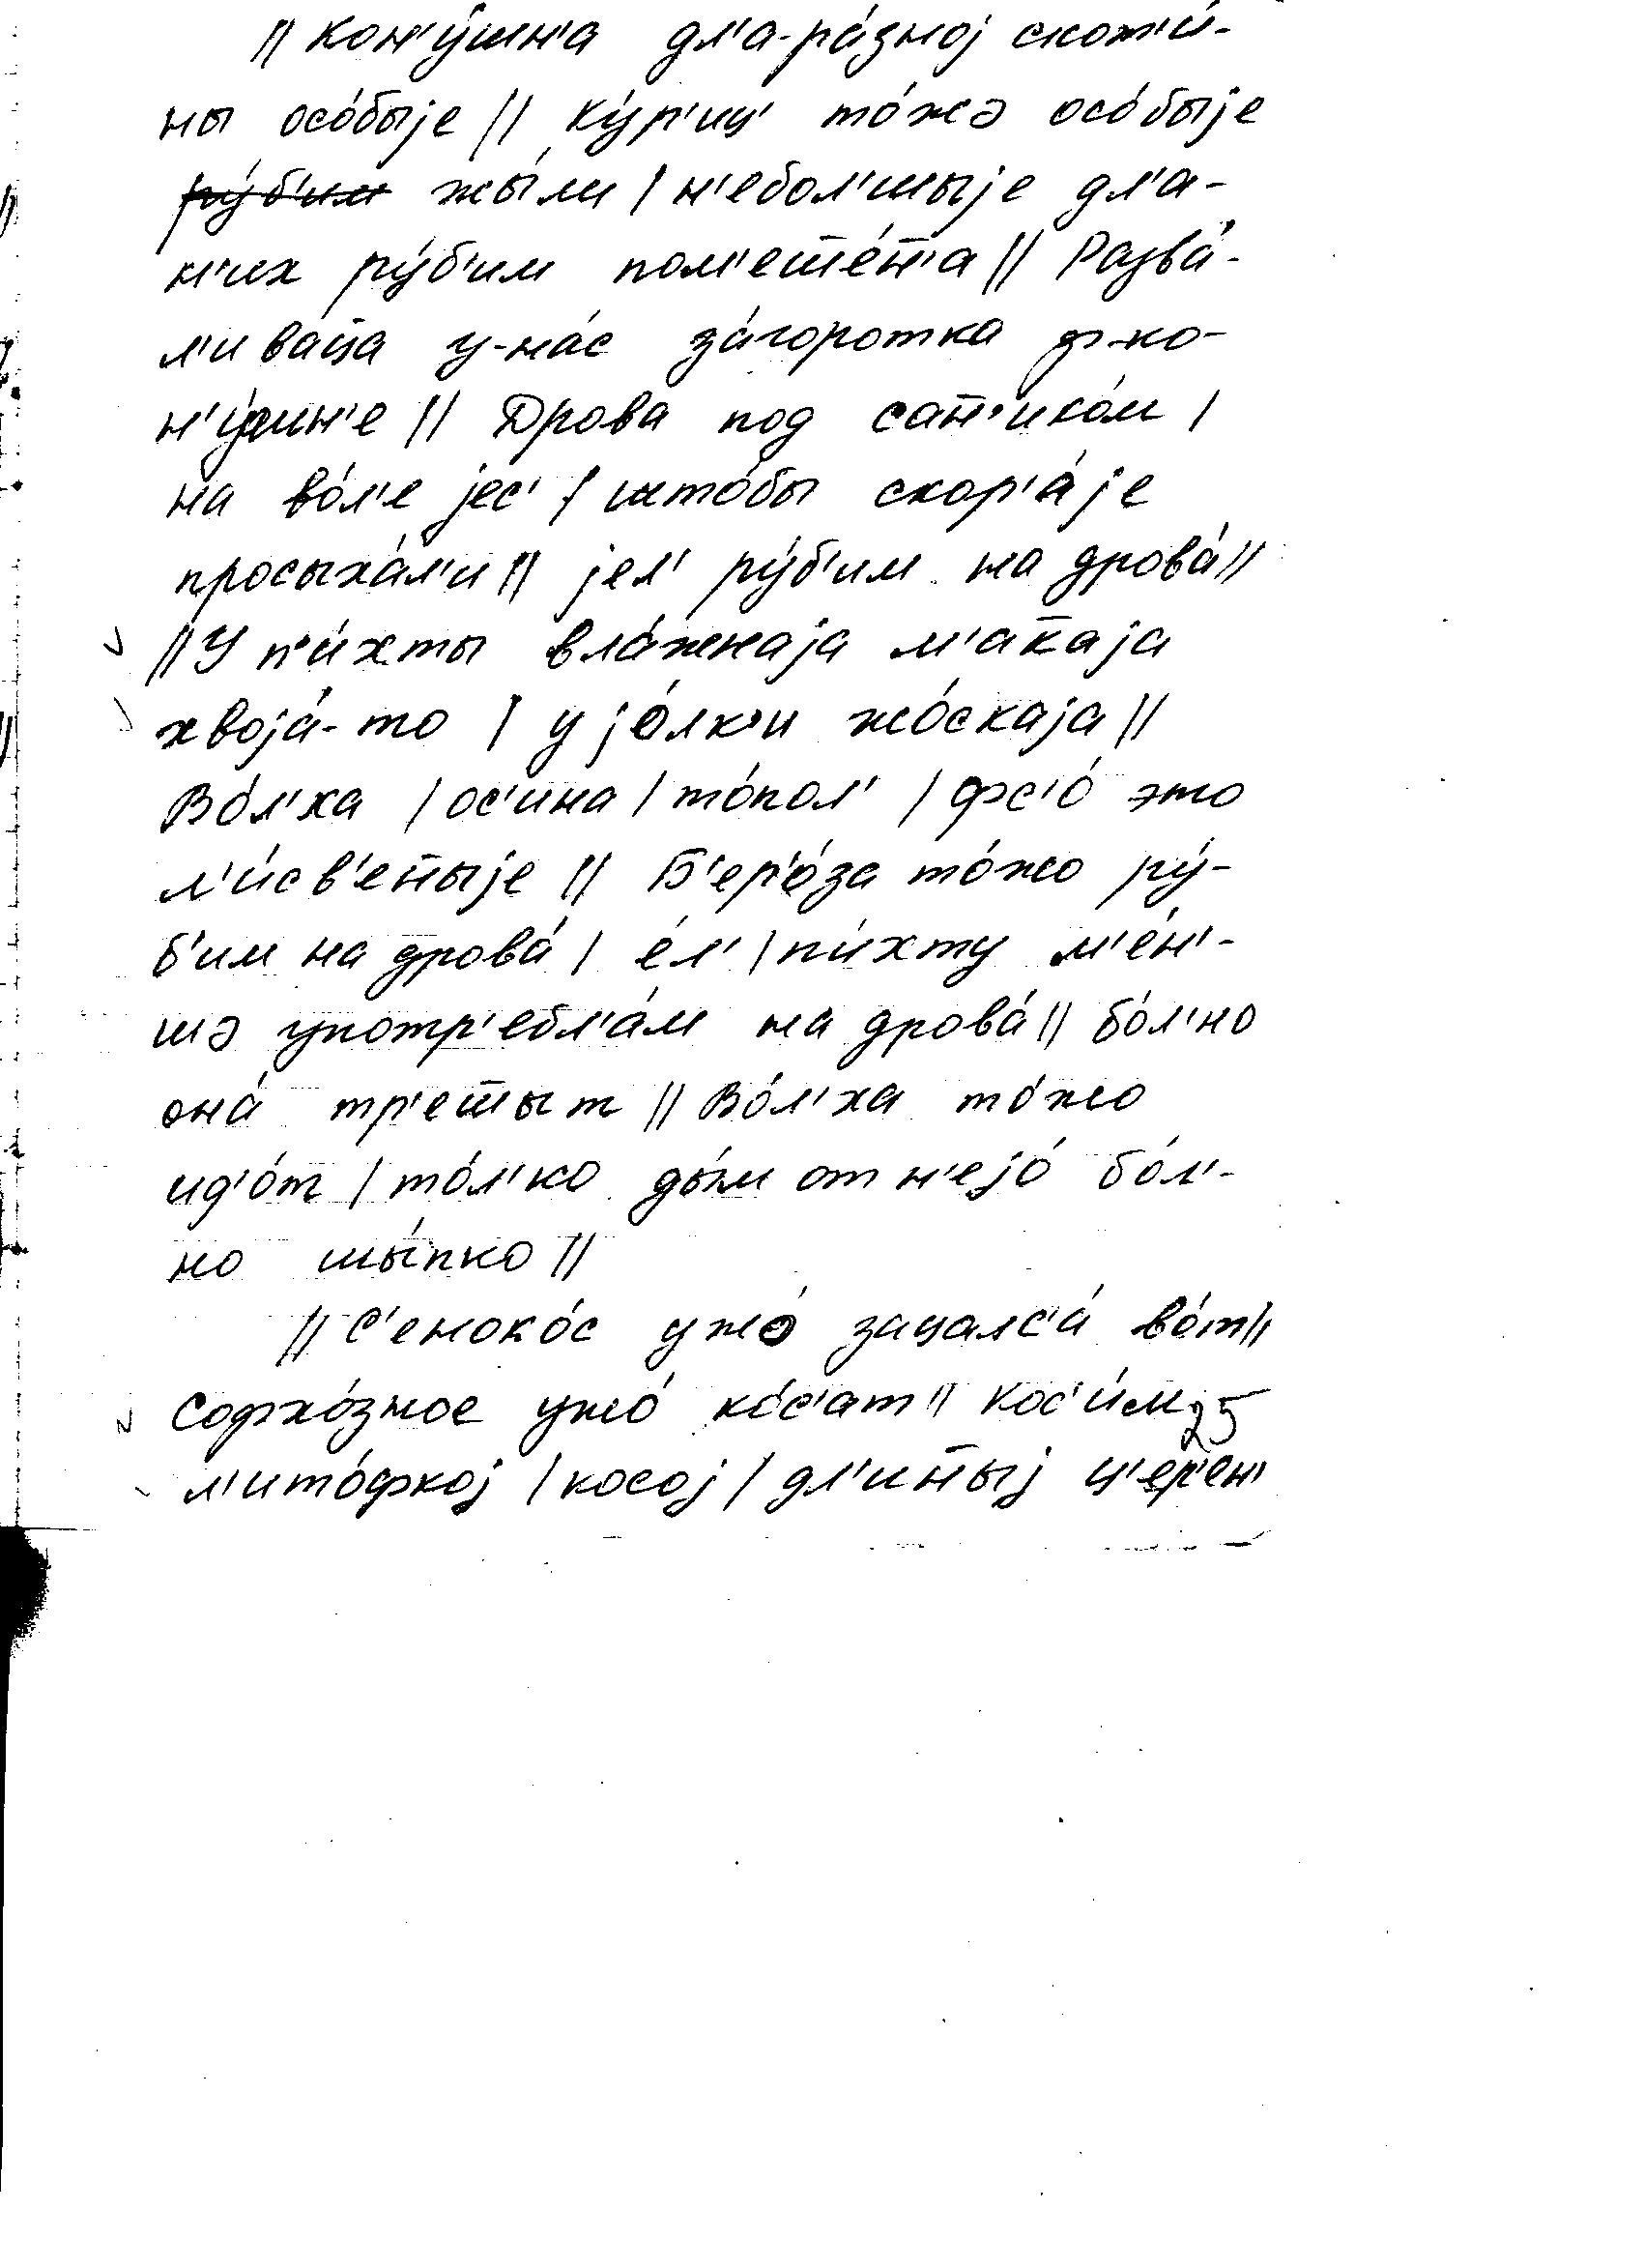 // Кон'у́шн'а дл'а-ра́зноj скот'и́-
ны осо́быjе // Ку́р'иц' то́жэ осо́быjе
~~ру́б'им~~ жы́ли / н'ебол'шыjе дл'а-
н'их ру́б'им пом'еш̄е́н̄'а // Разва́-
л'ивац̄а у-на́с за́горотка ф-ко-
н'у́шн'е // Дрова под сап'ико́м /
на во́л'е jес' / што́бы скор'а́jе
просыха́л'и // jел' ру́б'им на дрова́ //
// У п'и́хты вла́жнаjа м'аќаjа
хвоjа́-то / у jо́лк'и жо́скаjа //
Во́л'ха / ос'ина / то́пол' / фс'о́ это
л'и́св'ен̄ыjе // Б'ер'о́за то́жо ру́-
б'им на дрова́ / е́л' / пи́хту м'е́н'-
шэ употр'ебл'а́м на дрова́ // бо́л'но
она́ тр'еш̄ыт // Во́л'ха то́жо
ид'о́т / то́л'ко ды́м от н'еjо́ бо́л'-
но шы́пко //
// С'еноко́с ужо́ зацалс'а́ во́т //
Софхо́зное ужо́ ко́с'ат // Кос'и́м
25
л'ито́фкоj / косоj / дл'ин̄ыj ц'ер'ен'